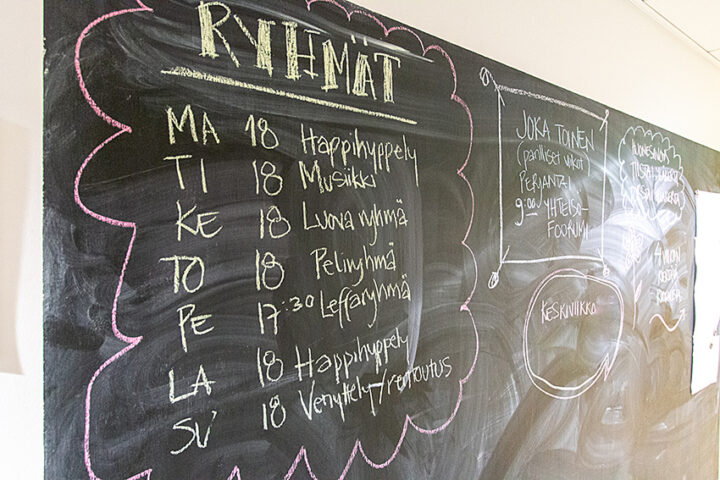 RYHMÄT
MA 18 Happihyppely
TI 18 Musiikki
KE 18 Luova ryhmä
TO 18 Peliryhmä
PE 17:30 Leffaryhmä
LA 18 Happihyppely
SU 18 Venyttely/rentoutus
JOKA TOINEN
(parilliset viikot)
PERJANTAI
9:00 YHTEISÖ-
FOORUMI
KESKIVIIKKO